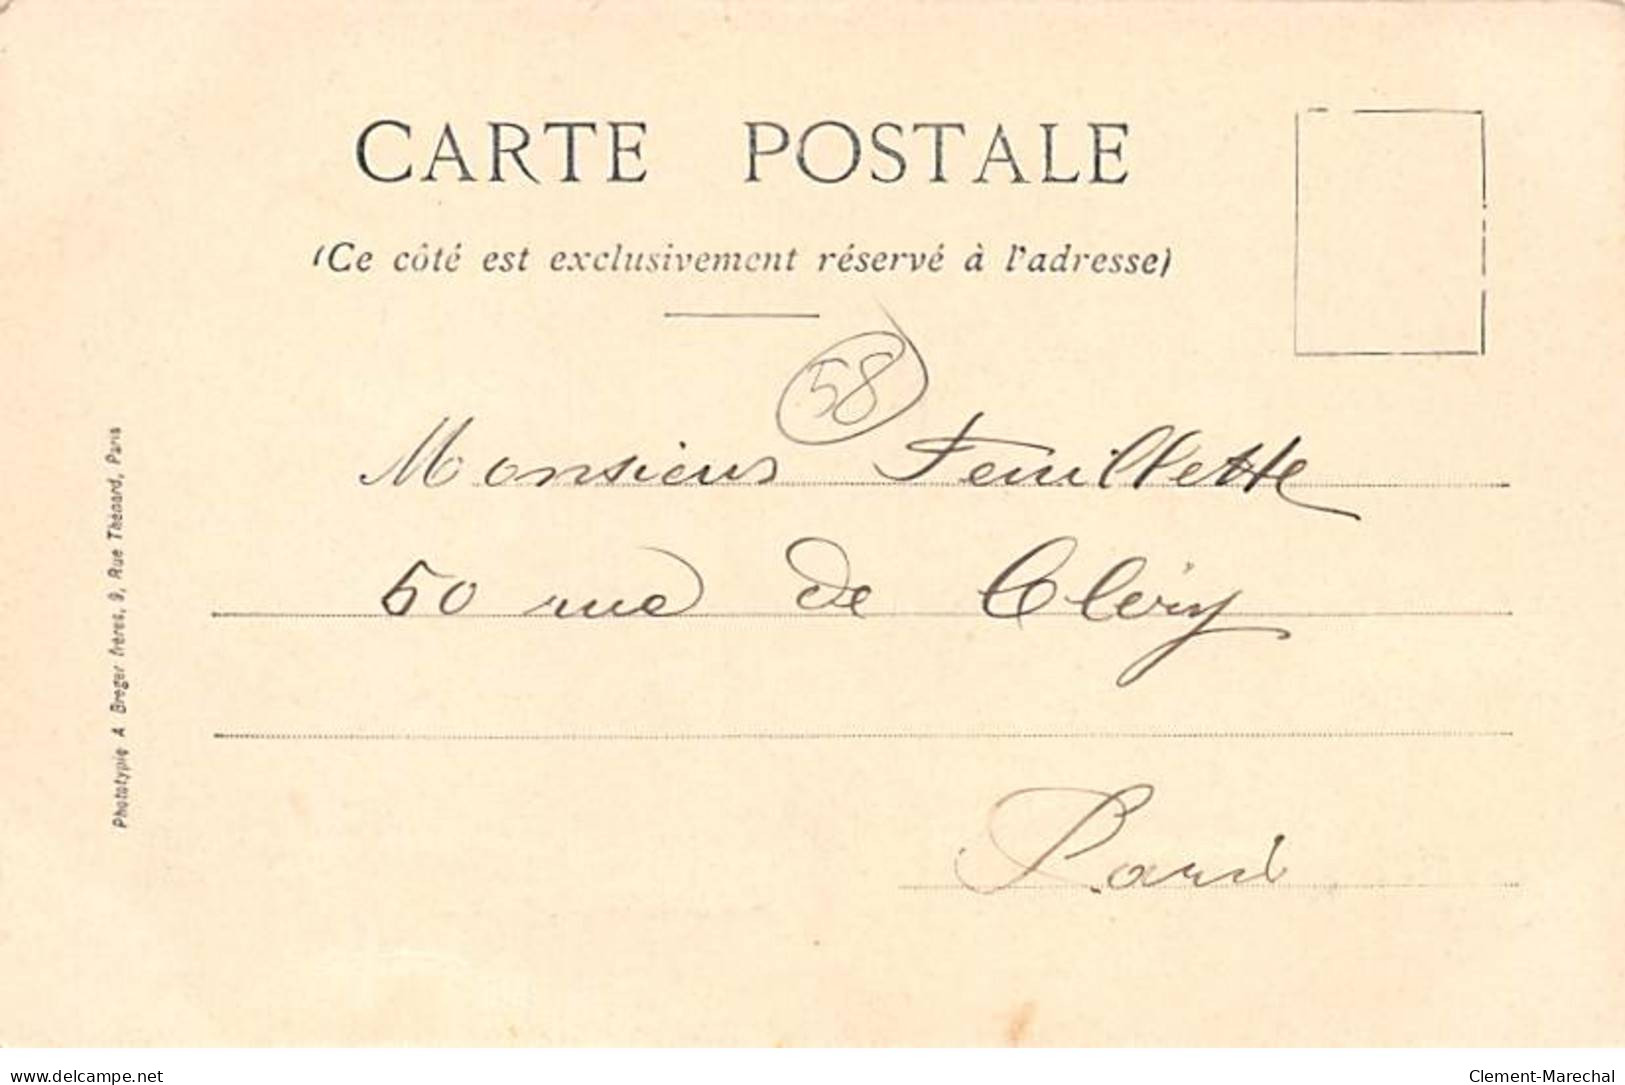 CARTE POSTALE
(Ce côté est exclusivement réservé à l'adresse)
58
Monsieur Feuillette
50 rue de Cléry
Paris
Phototypie A Breger frères, 9, Rue Thénard, Paris
www.delcampe.net
Clement-Marechal